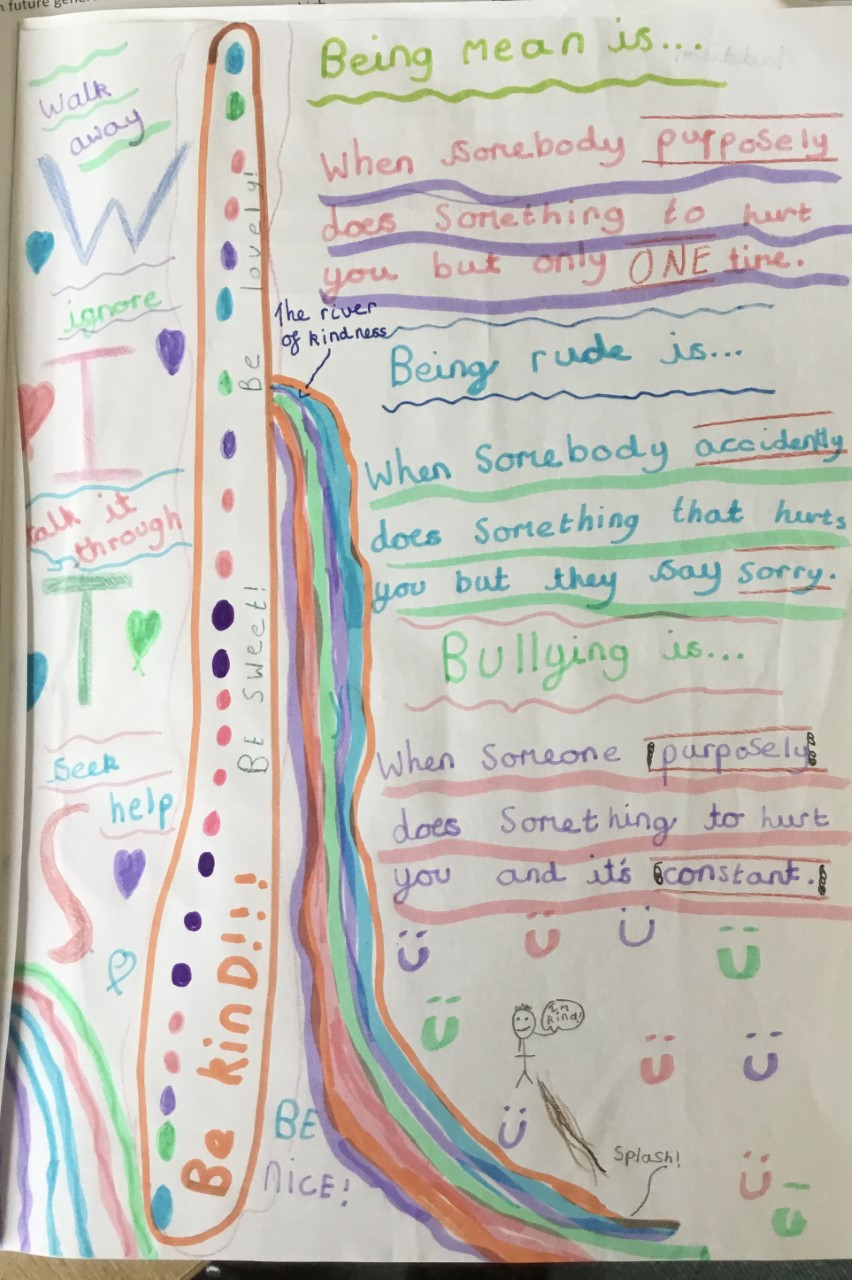 n future gener
Walk
away
W
ignore
I
talk it
through
T
Seek
help
S
Be lovely!
Be sweet!
Be kinD!!!
BE
NiCE!
The river
of kindness
Being mean is...
When somebody purposely
does something to hurt
you but only ONE time.
Being rude is...
When Somebody accidently
does something that hurts
you but they say sorry.
Bullying is...
When someone purposely
does something to hurt
you and it's constant.
I'm
kind!
Splash!